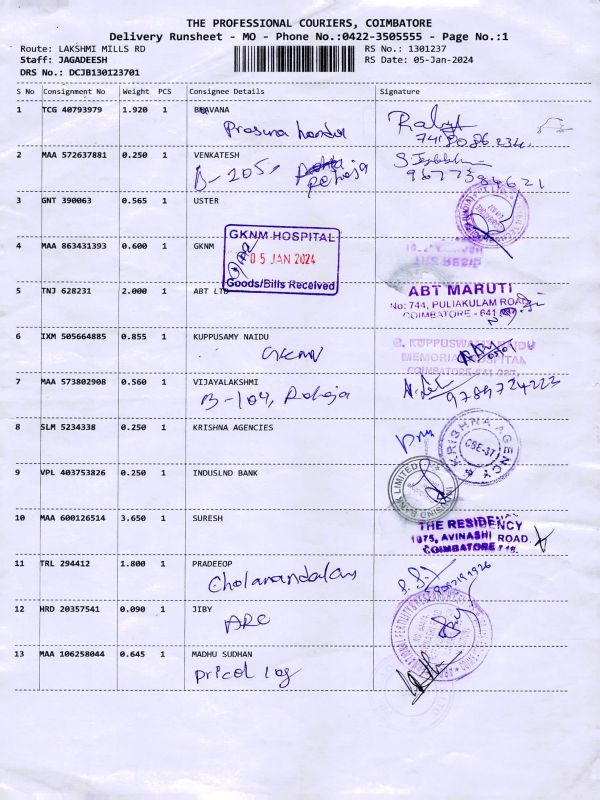 THE PROFESSIONAL COURIERS, COIMBATORE
Delivery Runsheet - MO - Phone No.:0422-3505555 - Page No.:1
Route: LAKSHMI MILLS RD RS No.: 1301237
Staff: JAGADEESH RS Date: 05-Jan-2024
DRS No.: DCJB130123701
S No Consignment No Weight PCS Consignee Details Signature
1 TCG 40793979 1.920 1 BHAVANA
2 MAA 572637881 0.250 1 VENKATESH
B-205, Raheja
3 GNT 390063 0.565 1 USTER
GKNM HOSPITAL
05 JAN 2024
Goods/Bills Received
4 MAA 863431393 0.600 1 GKNM
5 TNJ 628231 2.000 1 ABT LTD
ABT MARUTI
No: 744, PULIAKULAM ROAD
COIMBATORE - 641
6 IXM 505664885 0.855 1 KUPPUSAMY NAIDU
GKNM
G. KUPPUSWAMY NAIDU
MEMORIAL HOSPITAL
7 MAA 573802908 0.560 1 VIJAYALAKSHMI
B-104, Raheja 9789724222
8 SLM 5234338 0.250 1 KRISHNA AGENCIES
KRISHNA AGENCY
CBE-37
9 VPL 403753826 0.250 1 INDUSLND BANK
INDUSIND BANK LIMITED
10 MAA 600126514 3.650 1 SURESH
THE RESIDENCY
1075, AVINASHI ROAD.
COIMBATORE
11 TRL 294412 1.800 1 PRADEEOP
Cholamandalam
12 HRD 20357541 0.090 1 JIBY
ARC
13 MAA 106258044 0.645 1 MADHU SUDHAN
Pricol log